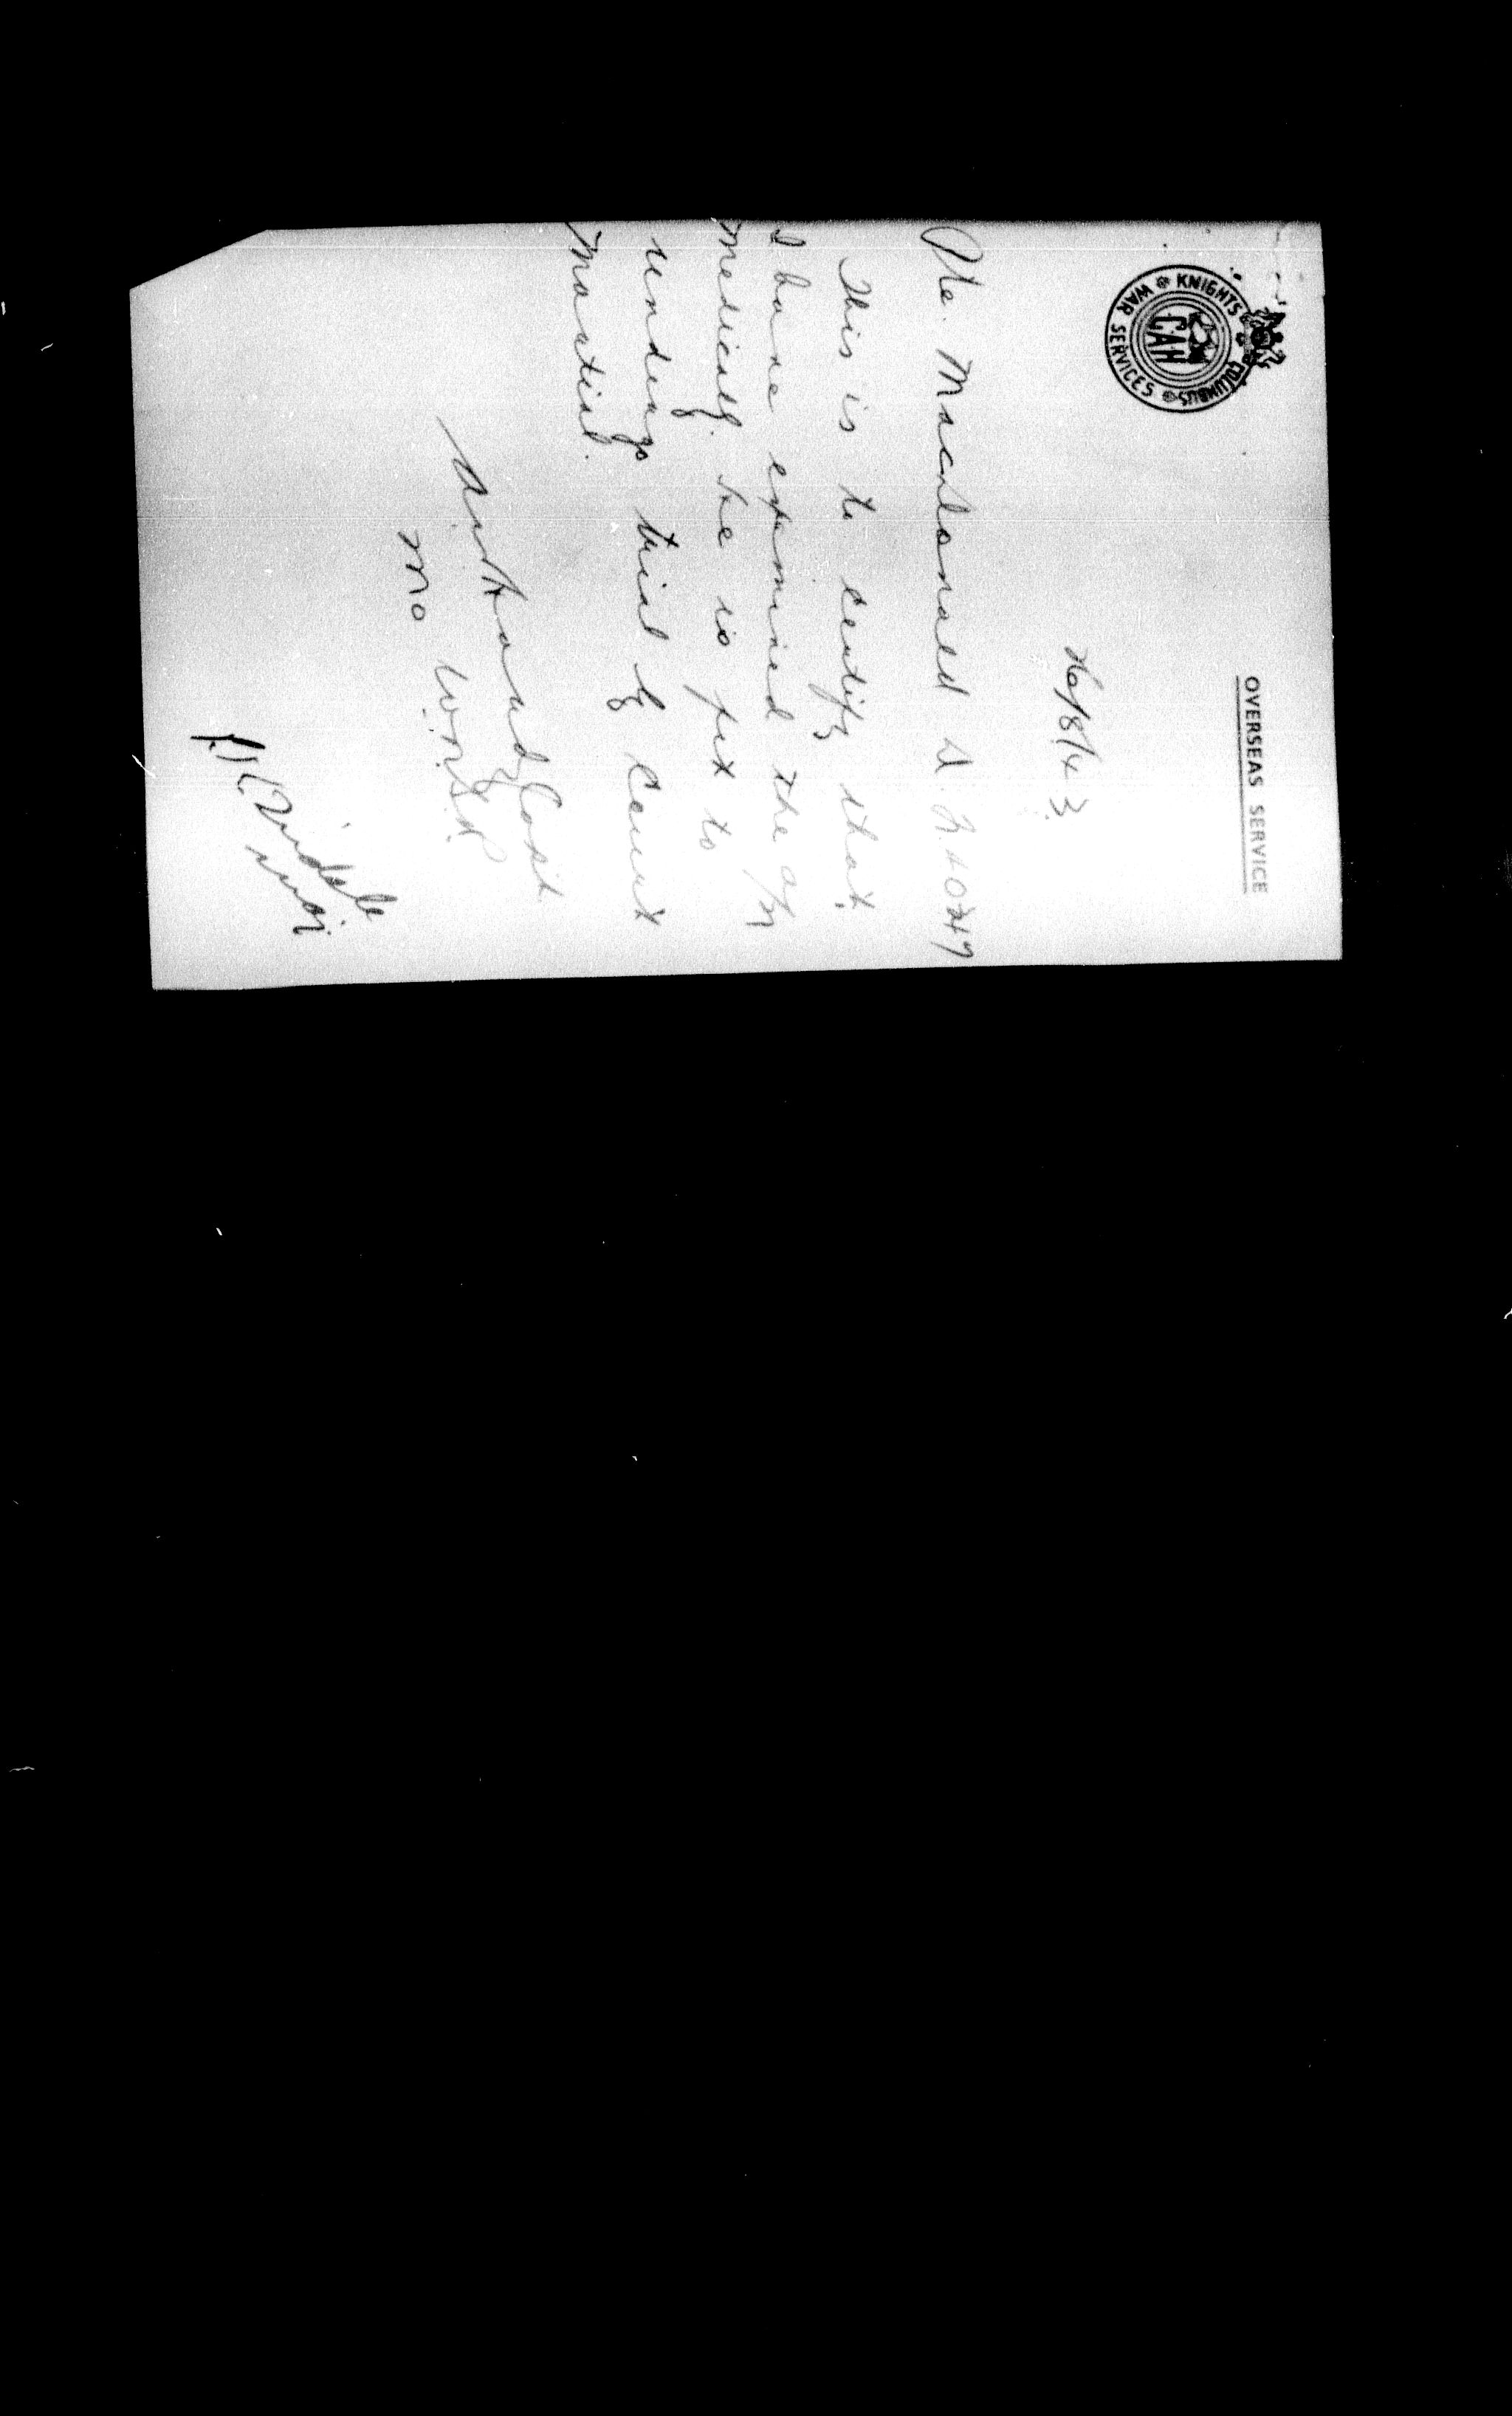 OVERSEAS SERVICE
KNIGHTS COLUMBUS
WAR SERVICES
C.A.H
26/8/43
Pte. Macdonald D
This is to certify that
I have examined the a/n
medically. He is fit to
undergo trial by Court
Martial.
Capt
MO
Maj